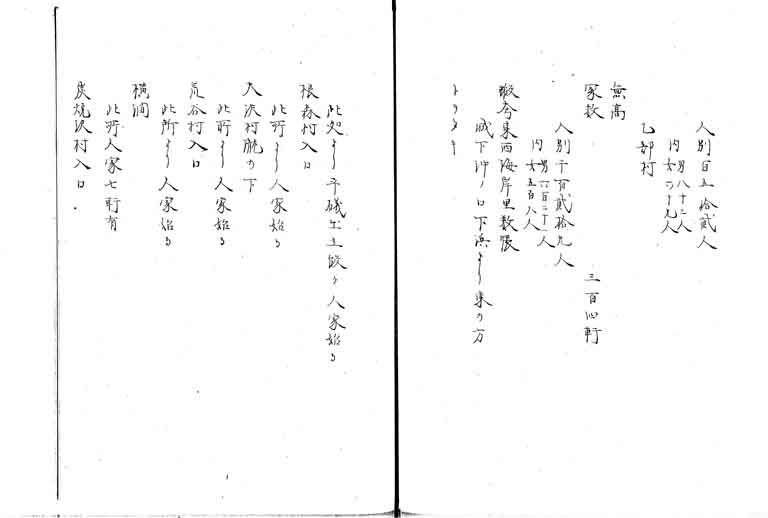 人別百五拾貳人
内 男八十三人
女六十九人
乙部村
無高
家数 三百四軒
人別千百貳拾九人
内 男六百二十一人
女五百八人
蝦夷東西海岸里数帳
城下沖ノ口下浜より東の方
トツタキ
此処より平磯
根森村入口
此所より人家始る
大沢村 の下
此所より人家始る
荒谷村入口
此所より人家始る
横澗
此所人家七軒有
炭焼沢村入口